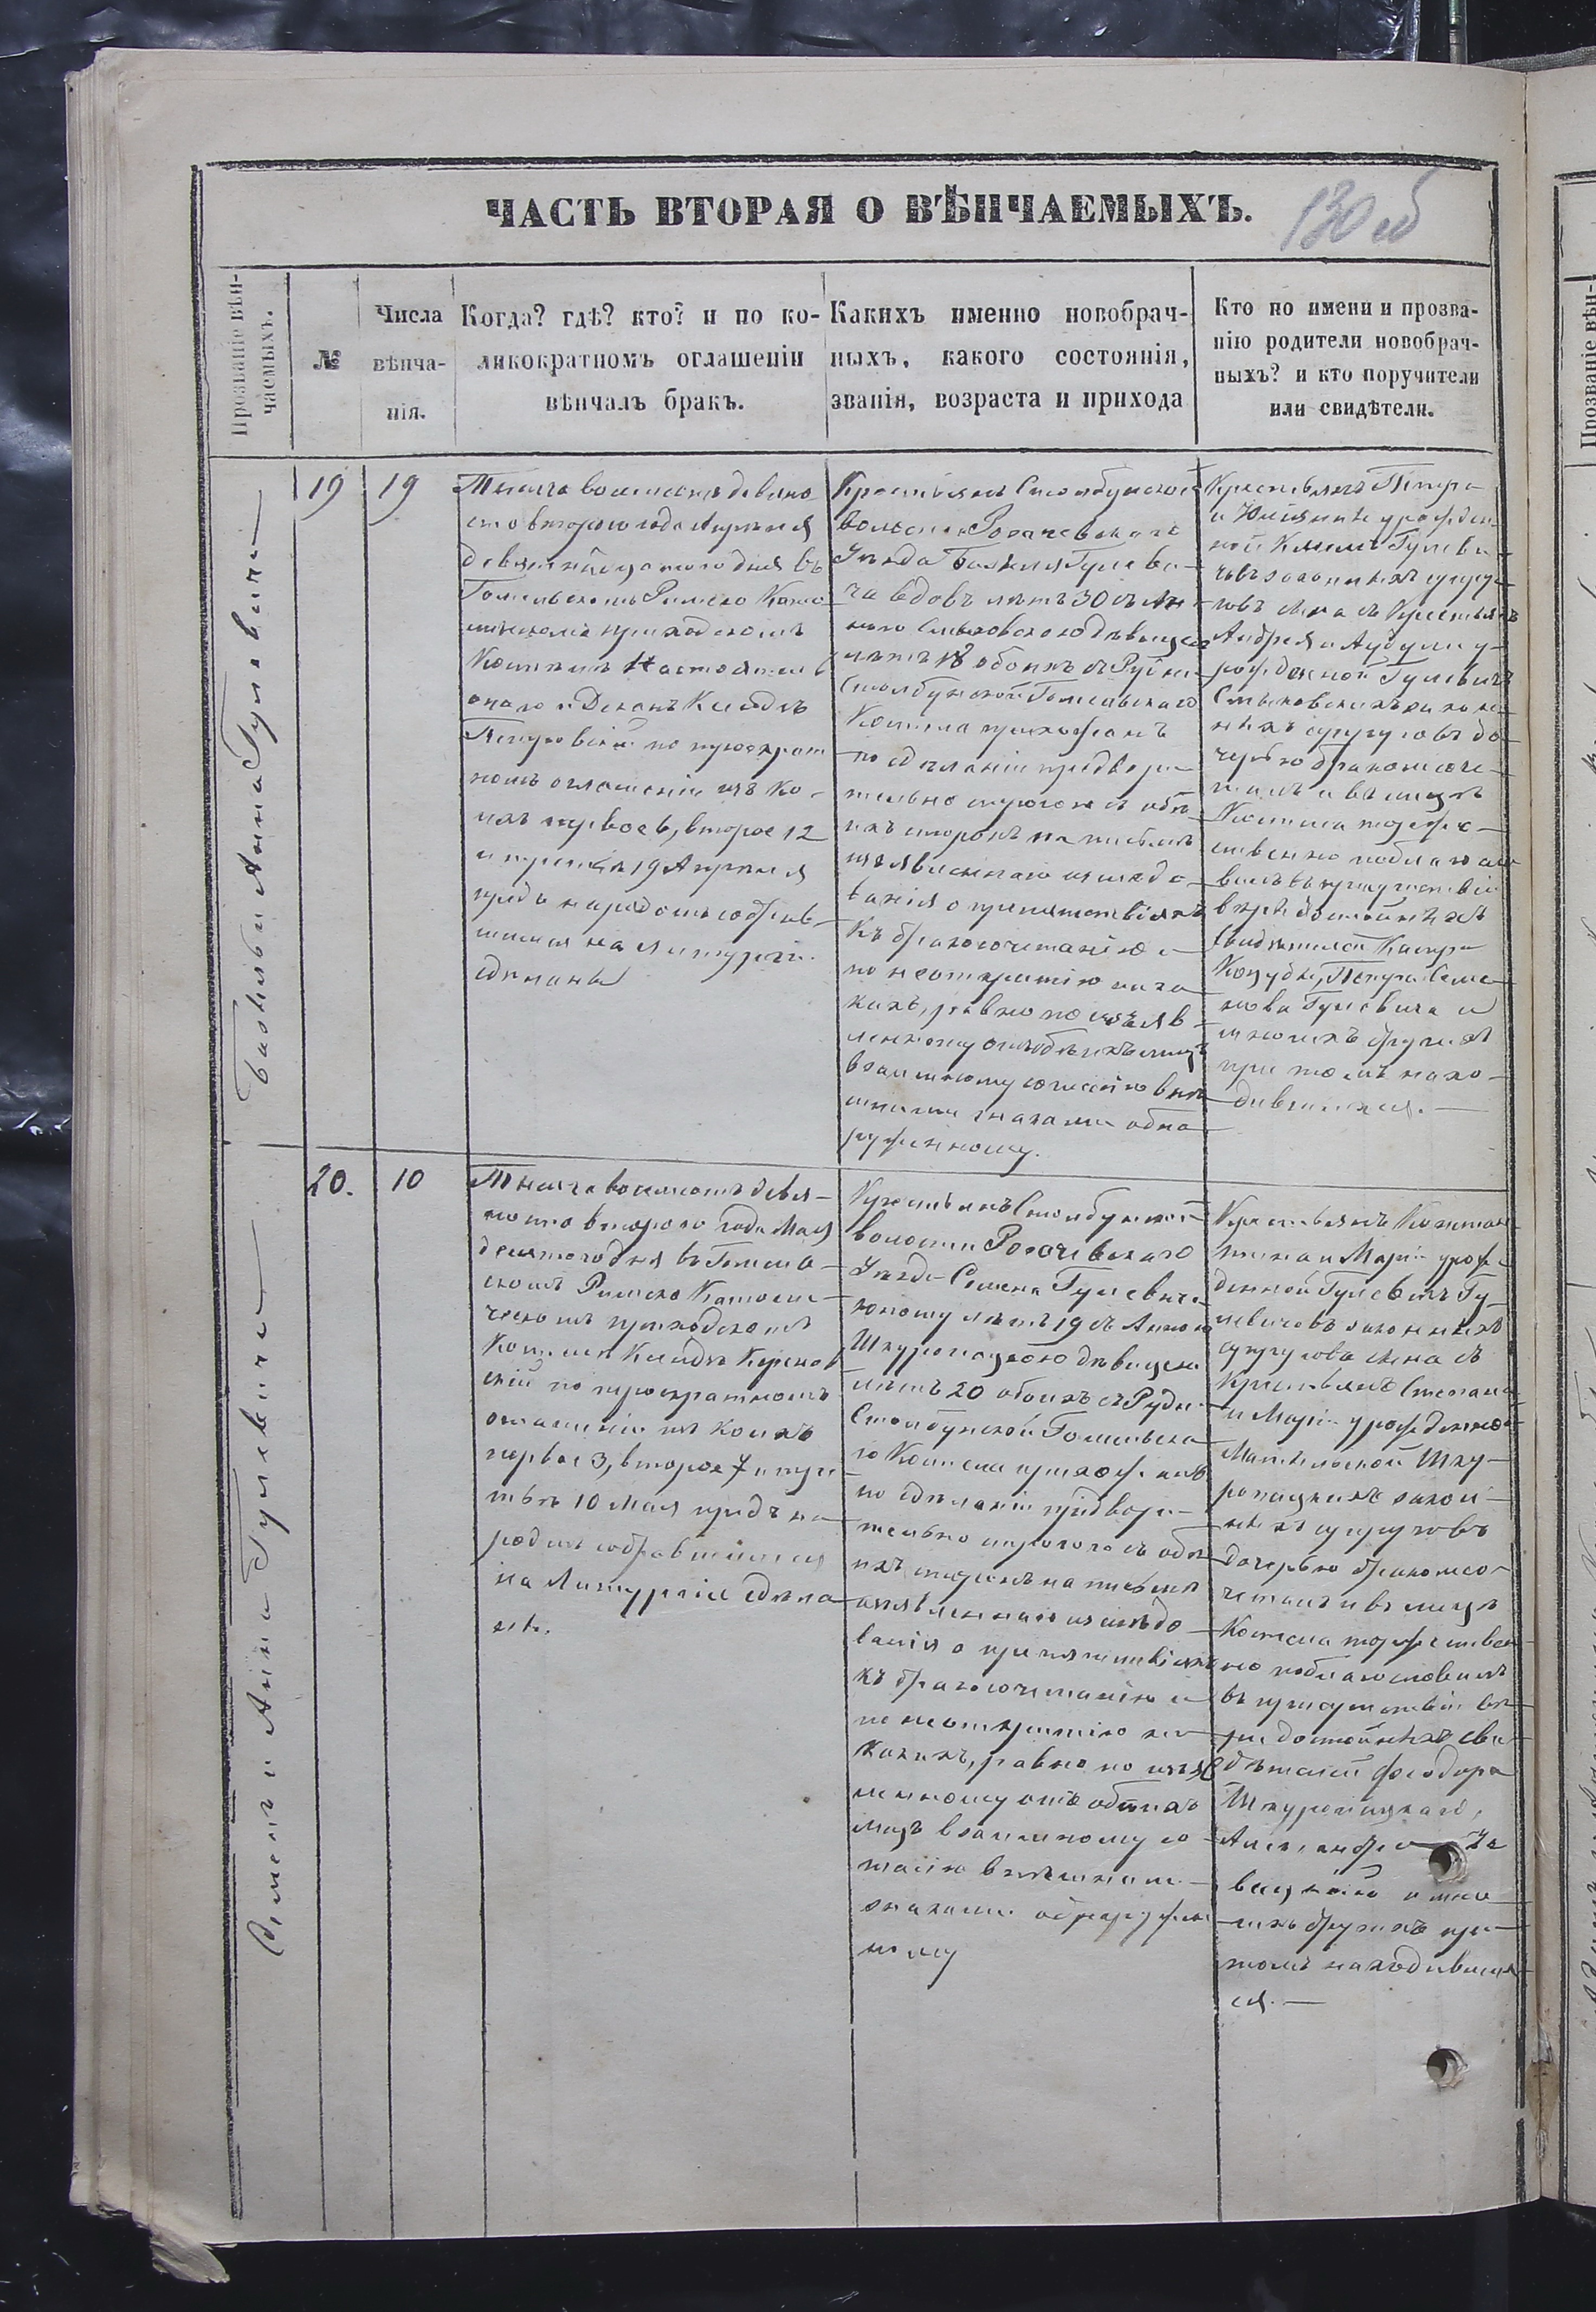 ЧАСТЬ ВТОРАЯ О ВѢНЧАЕМЫХЪ.
130 об
Прозваніе вѣн-
чаемыхъ.
№
Числа
вѣнча-
нія.
Когда? гдѣ? кто? и по ко-
ликократномъ оглашеніи
вѣнчалъ бракъ.
Какихъ именно новобрач-
ныхъ, какого состоянія,
званія, возраста и прихода
Кто по имени и прозва-
нію родители новобрач-
ныхъ? и кто поручители
или свидѣтели.
и Анна Гулевичи
19
19
Тысяча восемьсотъ девяно
сто второго года Апрѣля
девятнадцатого дня въ
Гомельскомъ Римско Като
лическомъ приходскомъ
Костелѣ Настоятель
онаго и Деканъ Ксендзъ
по троекрат
номъ оглашеніи изъ ко-
ихъ первое 6, второе 12
и третье 19 Апрѣля
предъ народомъ собрав-
шимся на Литургіи
сдѣланы
Крестьянъ Столбунской
волости Рогачевскаго
Уѣзда Гулеви-
ча вдовъ лѣтъ 30 съ Ан-
ною дѣвицею
лѣтъ 18 обоихъ съ Рудни
Столбунской Гомельскаго
Костела прихожанъ
по сдѣланіи предвари-
тельно строгого съ обѣ-
ихъ сторонъ на письмѣ
изъявленнаго изслѣдо-
ванія о препятствіяхъ
къ бракосочетанію и
по неоткрытію ника
кихъ, равно по изъяв-
ленному отъ обѣихъ лицъ
взаимному согласію внѣ
шними знаками обна-
руженному.
Крестьянъ Петра
и урожден-
ной Гулеви-
чевъ законныхъ супру-
говъ сына съ Крестьянъ
Андрея и у-
рожденной Гулевичъ
закон
ныхъ супруговъ до-
черью бракосоче-
талъ и въ лицѣ
Костела торже-
ственно благосло
вилъ въ присутствіи
вѣры достойныхъ
свидѣтелей
Петра Семе-
нова Гулевича и
многихъ другихъ
при томъ нахо-
дившихся.
Семенъ и Анна Гулевичи
20.
10
Тысяча восемьсотъ девя-
носто второго года Мая
десятого дня въ Гомель-
скомъ Римско Католи-
ческомъ приходскомъ
Костелѣ Ксендзъ
по троекратномъ
оглашеніи изъ коихъ
первое 3, второе 7 и тре
тье 10 Мая предъ на-
родомъ собравшимся
на Литургіи сдѣла
ны.
Крестьянъ Столбунской
волости Рогачевскаго
Уѣзда Семена Гулевича
юношу лѣтъ 19 съ Анною
дѣвицею
лѣтъ 20 обоихъ съ Рудни
Столбунской Гомельска
го Костела прихожанъ
по сдѣланіи предвари-
тельно строгого съ обѣ
ихъ сторонъ на письмѣ
изъявленнаго изслѣдо-
ванія о препятствіяхъ
къ бракосочетанію и
по неоткрытію ни
какихъ, равно по изъяв
ленному отъ обѣихъ
лицъ взаимному со-
гласію внѣшними
знаками обнаружен
ному
Крестьянъ Констан
тина и Маріи урож-
денной Гулевичъ Гу-
левичовъ законныхъ
супруговъ сына съ
Крестьянъ Степана
и Маріи урожденной
закон-
ныхъ супруговъ
дочерью бракосо-
четалъ и въ лицѣ
Костела торжествен-
но благословилъ
въ присутствіи вѣ-
ры достойныхъ сви-
дѣтелей Феодора
Александра
и мно
гихъ другихъ при
томъ находивших
ся.
Прозваніе вѣн-